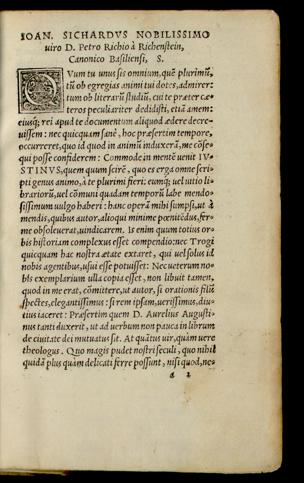 IOAN. SICHARDVS NOBILISSIMO
uiro D. Petro Richio à Richenstein,
Canonico Basiliensi, S.
CVum tu unus sis omnium, quē plurimū,
tū ob egregias animi tui dotes, admirer:
tum ob literarū studiū, cui te præter cæ
teros peculiariter dedidisti, etiā amem:
eiusq; rei apud te documentum aliquod ædere decre-
uissem: nec quicquam sanè, hoc præsertim tempore,
occurreret, quo id quod in animū induxerā, me cōse-
qui posse confiderem: Commode in mentē uenit IV-
STINVS, quem quum scirē, quo es erga omne scri-
pti genus animo, à te plurimi fieri: eumq; uel
brariorū, uel cōmuni quadam temporū labe mendo-
sissimum uulgo haberi: hanc operā mihi sumpsi, ut à
mendis, quibus autor, alioqui minime pœnitēdus, fer-
me obsoleuerat, uindicarem. Is enim quum totius or-
bis historiam complexus esset compendio: nec Trogi
quicquam hac nostra ætate extaret, qui uel solus id
nobis agentibus, usui esse potuisset: Nec ueterum no-
bis exemplarium ulla copia esset, non libuit tamen,
quod in me erat, cōmittere, ut autor, si orationis filū
spectes, elegantissimus: si rem ipsam, uerissimus, diu-
tius iaceret: Præsertim quem D. Aurelius Augusti-
nus tanti duxerit, ut ad uerbum non pauca in librum
de ciuitate dei mutuatus sit. At quātus uir, quàm uere
theologus. Quo magis pudet nostri seculi, quo nihil
quidā plus quàm delicati ferre possunt, nisi quod, ne-
a 2